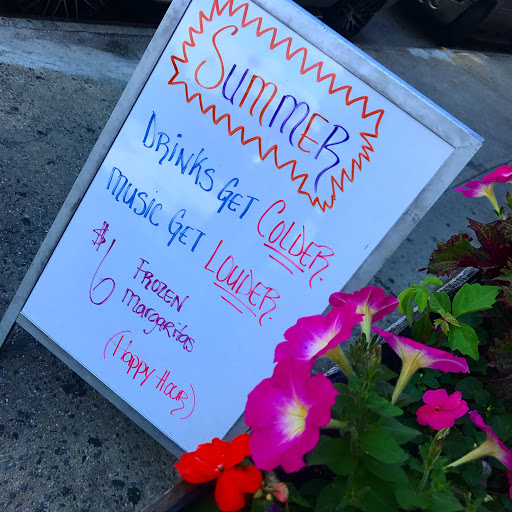 SUMMER
DRINKS GET COLDER.
MUSIC GET LOUDER.
$6 FROZEN
margaritas
(Happy Hour)